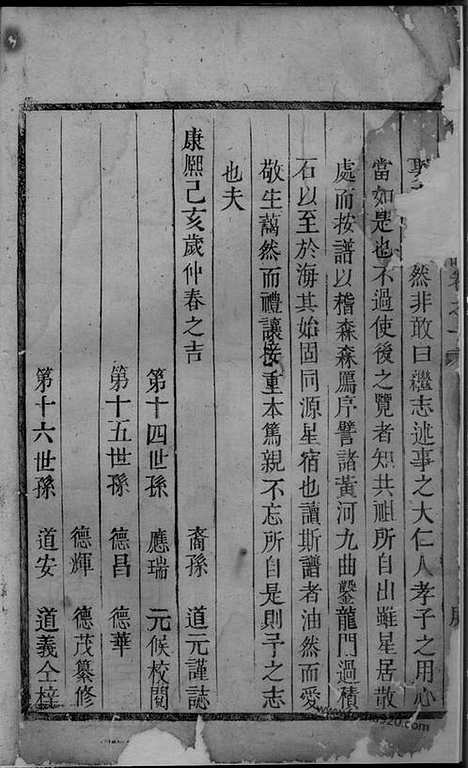 聖
然非敢曰繼志述事之大仁人孝子之用心
當如是也不過使後之覽者知共祖所自出雖星居散
處而按譜以稽森森鴈序譬諸黃河九曲鑿龍門過積
石以至於海其始固同源星宿也讀斯譜者油然而愛
敬生藹然而禮讓接重本篤親不忘所自是則予之志
也夫
康熙己亥歲仲春之吉
裔孫 道元謹誌
第十四世孫 應瑞 元候校閱
第十五世孫 德昌 德華
德輝 德茂纂修
第十六世孫 道安 道義仝梓
卷之一